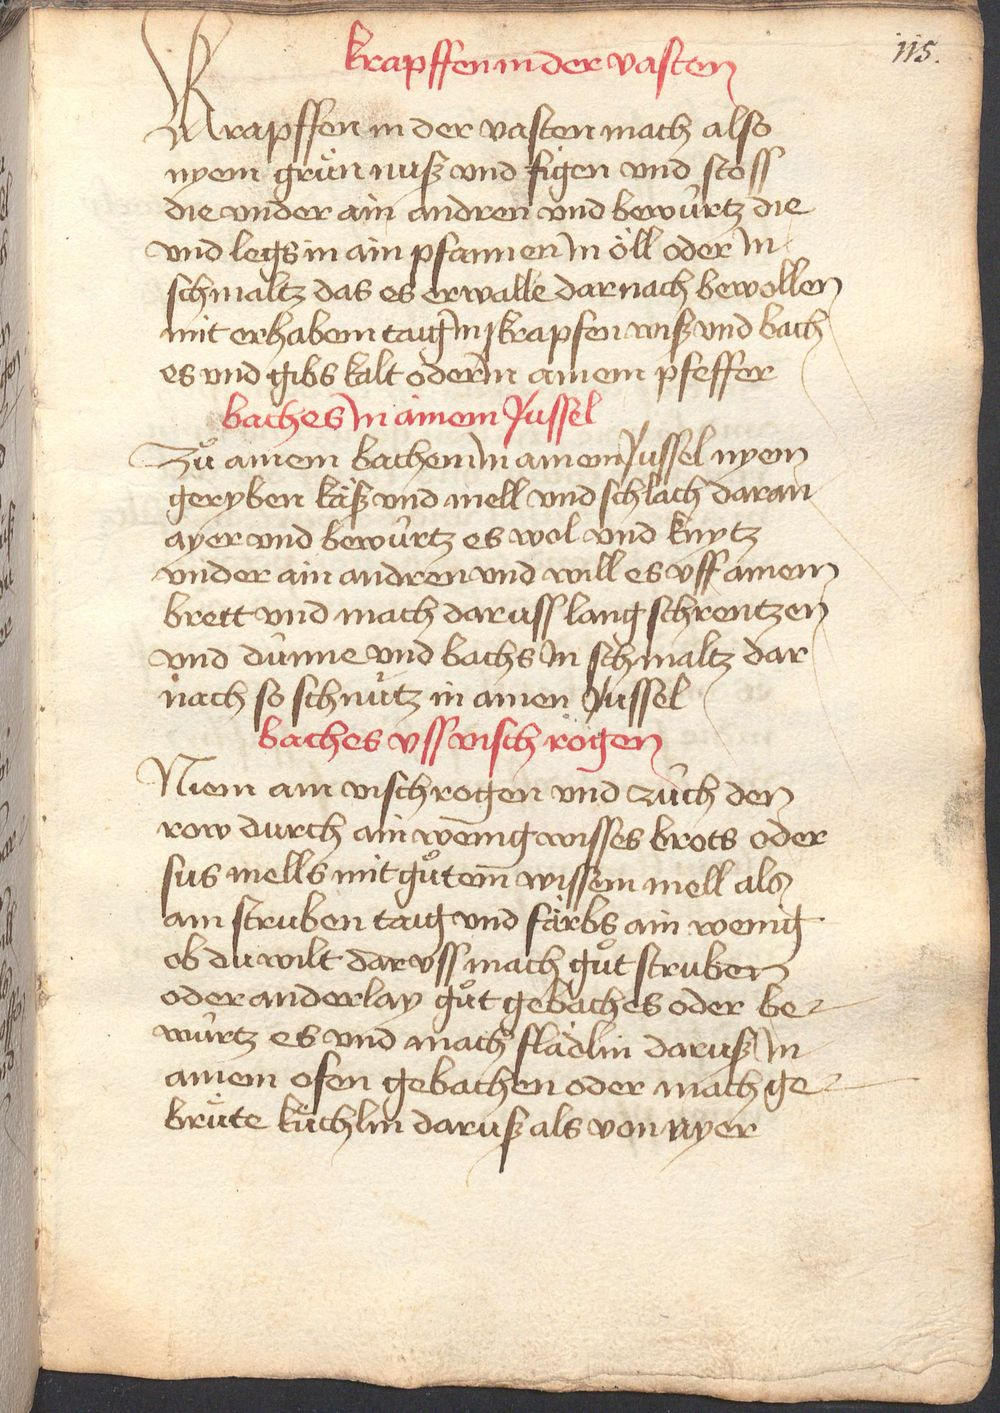 115.
krapffen in der vasten
Krapffen in der vasten mach also
nyem grün nuß vnd figen vnd stoss
die vnder ain andren vnd bewürtz die
vnd legs in ain pfannen in öll oder in
schmaltz das es erwalle dar nach bewollen
mit erhabem taig in krapfen wiß vnd bach
es vnd gibs kalt oder in ainem pfeffer
baches in ainem Jussel
Zů ainem bachem in ainem Jussel nyem
geryben käß vnd mell vnd schlach daran
ayer vnd bewürtz es wol vnd knytz
vnder ain andren vnd will es vff ainem
brett vnd mach daruss lang schrentzen
vnd dünne vnd bachs in schmaltz dar
nach so schnütz in ainen Jussel
baches vss visch rogen
Niem ain visch rogen vnd zůch den
row durch ain wening wisses brots oder
sus mells mit gůtem wissem mell als
ain struben taig vnd färbs ain wenig
ob du wilt dar vss mach gůt struben
oder anderlay gůt gebaches oder be-
würtz es vnd mach flädlin daruß in
ainem ofen gebachen oder mach ge-
brüte küchlin daruß als von ayer